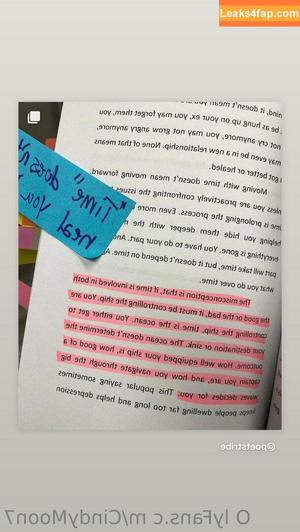 Leaks4fap.com
mind, it doesn't mean you are
be as hung up on your ex, you may forget them, you
not cry anymore, you may not grow angry anymore,
may even be in a new relationship. None of that means
got better or healed.
Moving with time doesn't mean moving forward
unless you are proactively confronting the issues
time is prolonging the process. Even more
helping you hide them deeper with the
everything is gone. You have to do your part. And
part will take time, but it doesn't depend on time.
what you do over time.
The misconception is that, if time is involved in both
the good or the bad, it must be controlling the ship. You are
controlling the ship, time is the ocean. You either get to
your destination or sink. The ocean doesn't determine the
outcome. How well equipped your ship is, how good of a
captain you are, and how you navigate through the big
waves decides for you. This popular saying sometimes
keeps people dwelling far too long and helps depression
"Time does
heal you
@poetstribe
OlyFans.c m/CindyMoon7